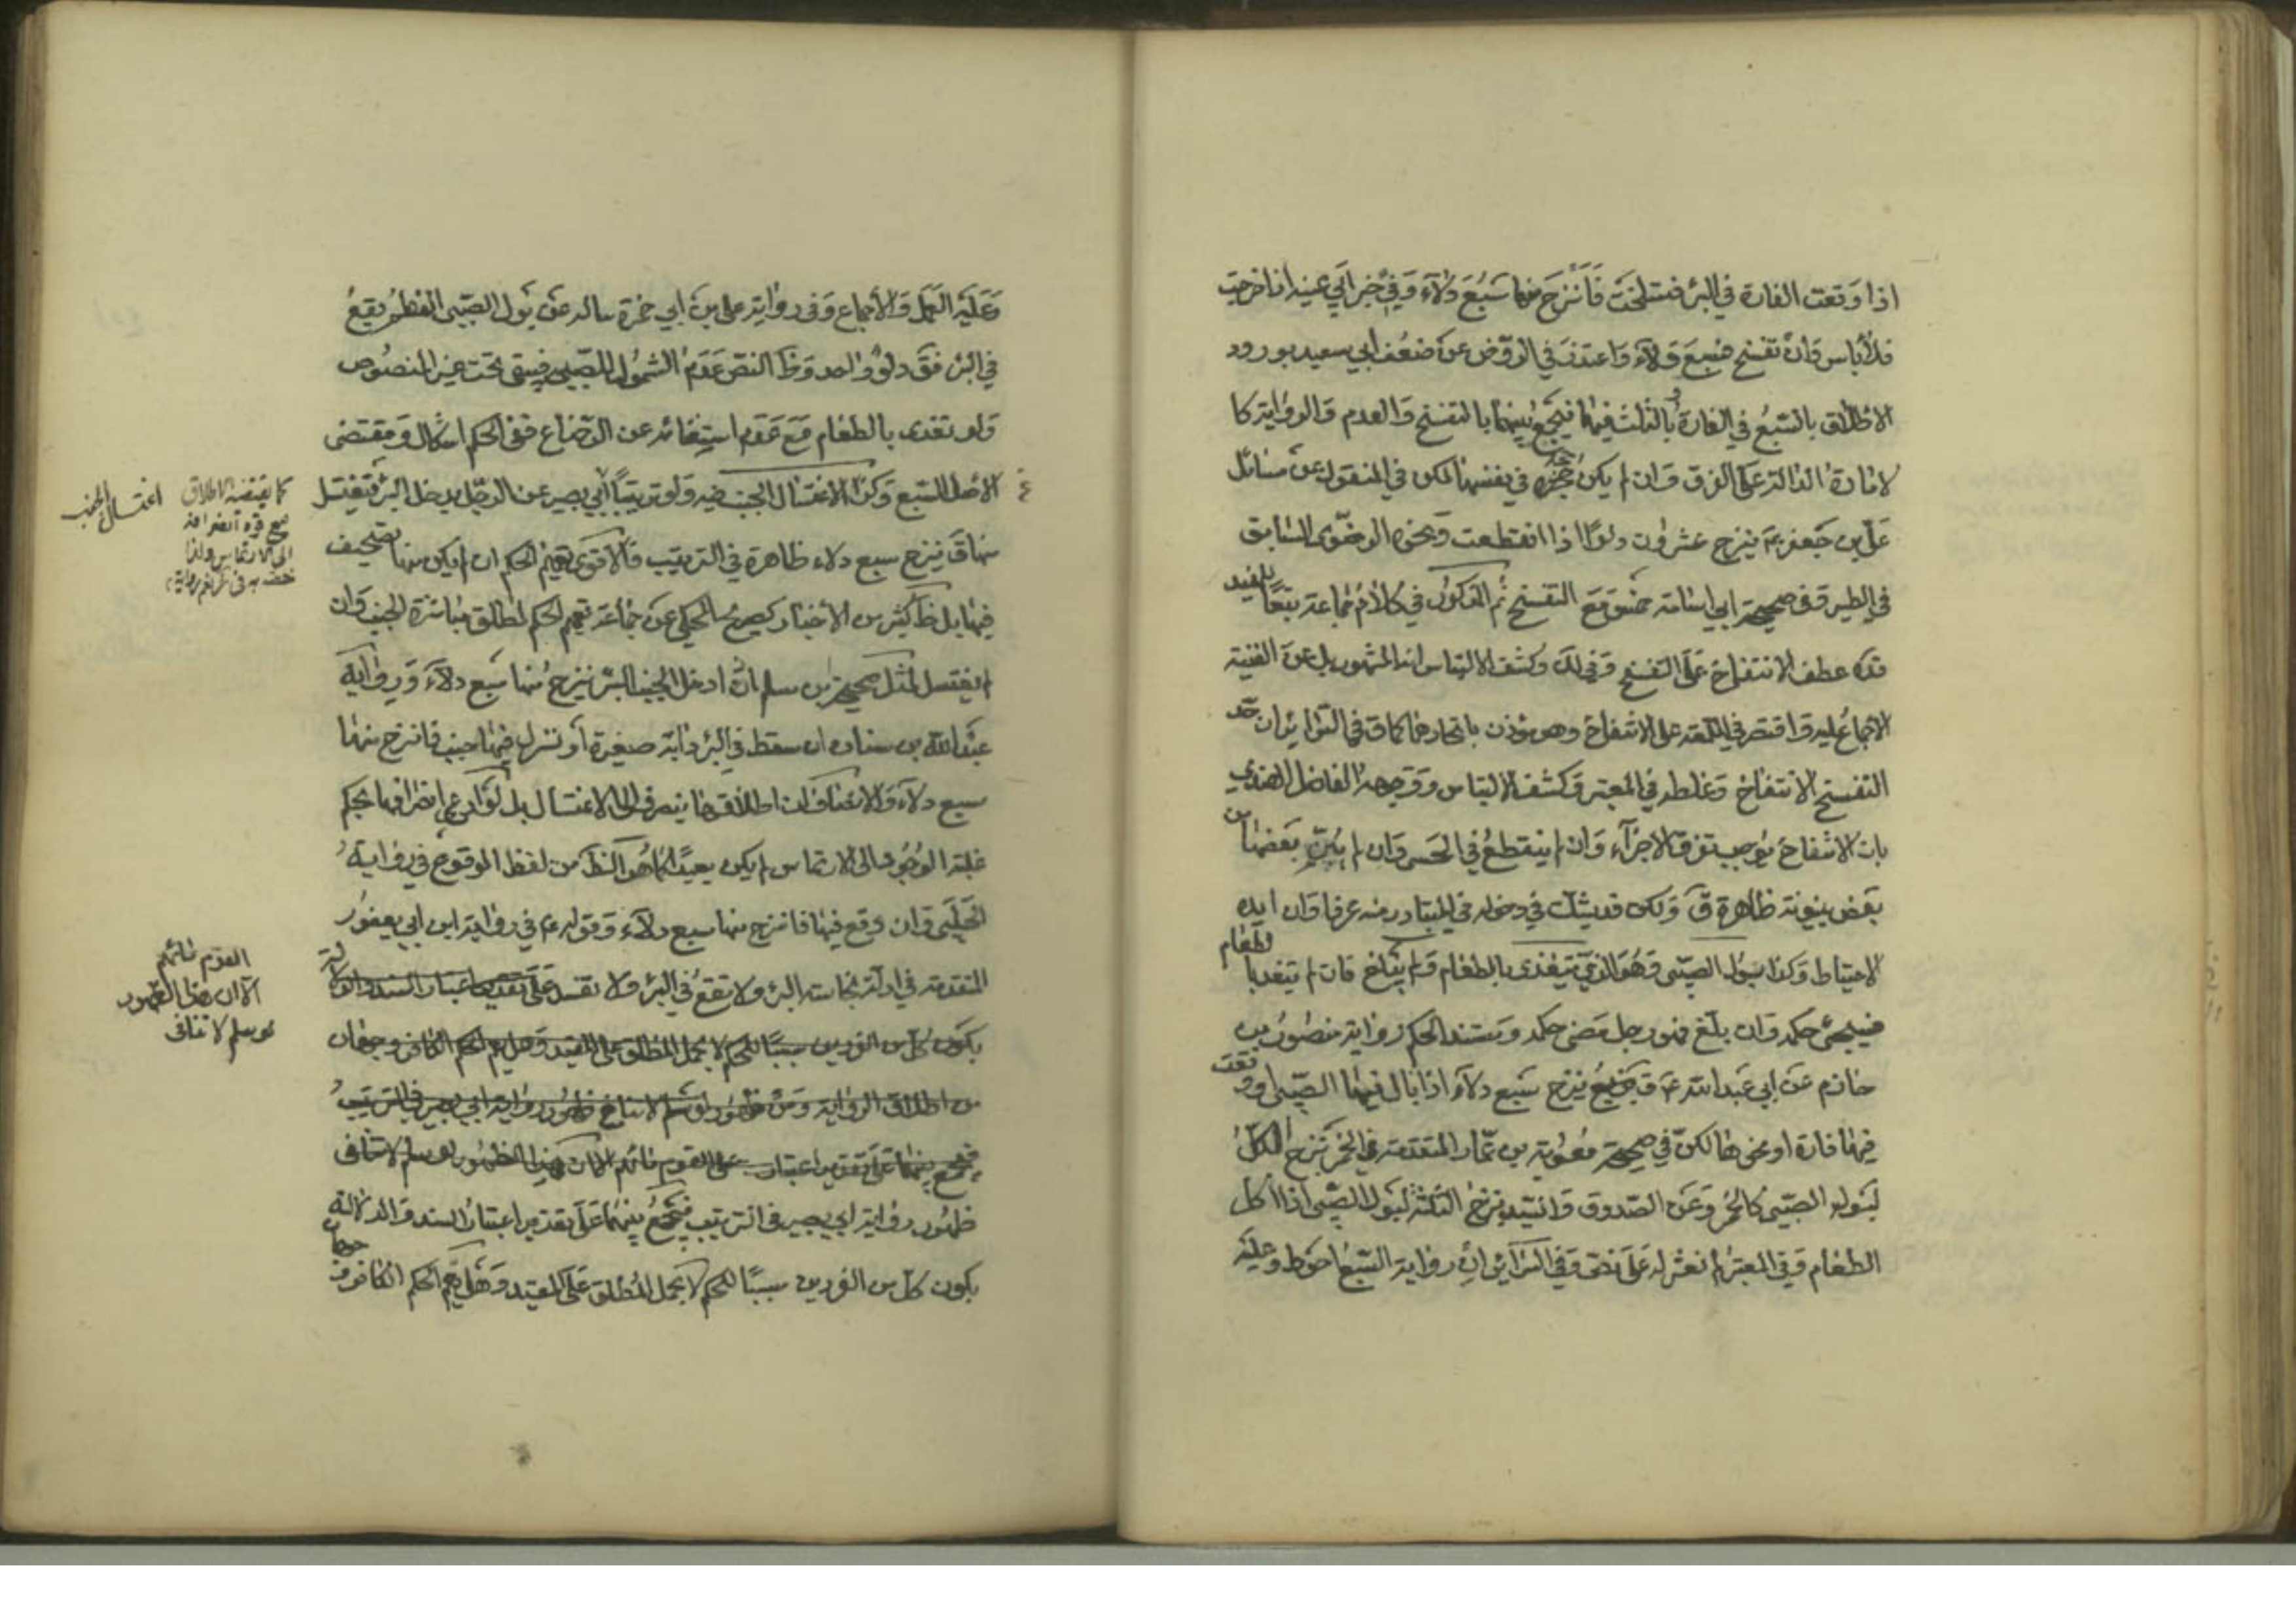 اذا وقعت الفارة في البئر فتسلخت فانزح منها سبع دلاء وفي خبر ابي عيينه اذا خرجت
فلا باس وان تفسخ فسبع دلاء واعتذر في الروض عن ضعف ابي سعيد بورود
الاطلاق بالسبع في الفارة وبالثلث فيها فيجمع بينهما بالتفسخ والعدم والرواية كا
لامارة الدالة على الفرق وان لم يكن حجة في نفسها لكن في المنقول عن مسائل
علي بن جعفر ع ينزح عشرون دلوا اذا انقطعت ونحوه الرضوي السابق
في الطير وفي صحيحة ابي اسامة خمس مع التفسخ ثم المذكور في كلام جماعة تبعا للمفيد
قده عطف الانتفاخ على التفسخ وفي لك وكشف الالتباس انه المشهور بل عن الغنية
الاجماع عليه واقتصر في اللمعة على الانتفاخ وهو مؤذن باتحادهما كما ق في السرائر ان حد
التفسخ الانتفاخ وغلطه في المعتبر وكشف الالتباس ووجهه الفاضل الهندي
بان الانتفاخ يوجب تفرق الاجزاء وان لم ينقطع في الحس وان لم يبن بعضها من
بعض بينونة ظاهرة ق ولكن قد يشك في دخوله في المتبادر منه عرفا وان ايده
الاحتياط وكذا لبول الصبي وهو الذي يتغذى بالطعام ولم يبلغ فان لم يتغد بالطعام
فسيجئ حكمه وان بلغ فهو رجل مضى حكمه ومستند الحكم رواية منصور بن
حازم عن ابي عبد الله ع ق ينزح سبع دلاء اذا بال فيها الصبي او وقعت
فيها فارة او نحوها لكن في صحيحة معوية بن عمار المتقدمة في الخمر نزح الكل
لبول الصبي كالخمر وعن الصدوق والسيد نزح الثلثة لبول الصبي اذا اكل
الطعام وفي المعتبر لم نعثر له على نص وفي السرائر ان رواية السبع احوط وعليه
وعليه العمل والاجماع وفي رواية علي بن ابي حمزة سالته عن بول الصبي الفطيم يقع
في البئر فق دلو واحد وظ النص عدم الشمول للصبية فيبقى تحت غير المنصوص
ولو تغذى بالطعام مع عدم استغنائه عن الرضاع ففي الحكم اشكال ومقتضى
الاصل السبع وكذا لاغتسال الجنب فيه ولو ترتيبا لابي بصير عن الرجل يدخل البئر فيغتسل
منها ق ينزح سبع دلاء ظاهرة في الترتيب فالاقوى تعميم الحكم ان لم يكن منها تصحيف
فيها بل ظ كثير من الاخبار كصريح المحكي عن جماعة تعميم الحكم لمطلق مباشرة الجنب وان
لم يغتسل لمثل صحيحة بن مسلم ان ادخل الجنب البئر ينزح منها سبع دلاء ورواية
عبد الله بن سنان ان سقط في البئر دابة صغيرة او نزل فيها جنب فانزح منها
سبع دلاء والانصاف ان اطلاقها ينصرف الى الاغتسال بل لو ادعي انصرافها بحكم
غلبة الوجود الى الارتماس لم يكن بعيدا كما هو الظ من لفظ الوقوع في رواية
الحلبي وان وقع فيها فانزح منها سبع دلاء وقوله ع في رواية ابن ابي يعفور
المتقدمة في ادلة نجاسة البئر ولا تقع في البئر ولا تفسد على تقدير اعتبار السند والدلالة
يكون كل من الفردين سببا للحكم لا يحمل المطلق على المقيد وهل يعم الحكم الكافر وجهان
من اطلاق الرواية ومن ظهور
فيجمع بينهما على تقدير اعتبار على القوم فانهم الان هذا الظهور لو سلم لا ينافي
ظهور رواية ابي بصير في الترتيب فيجمع بينهما على تقدير اعتبار السند والدلالة
يكون كل من الفردين سببا للحكم لا يحمل المطلق على المقيد وهل يعم الحكم الكافر وجهان
اغتسال الجنب
كما يقتضيه الاطلاق
مع قوة انصرافه
الى الارتماس ولذا
القوم فانهم
الا ان هذا الظهور
لو سلم لا ينافي